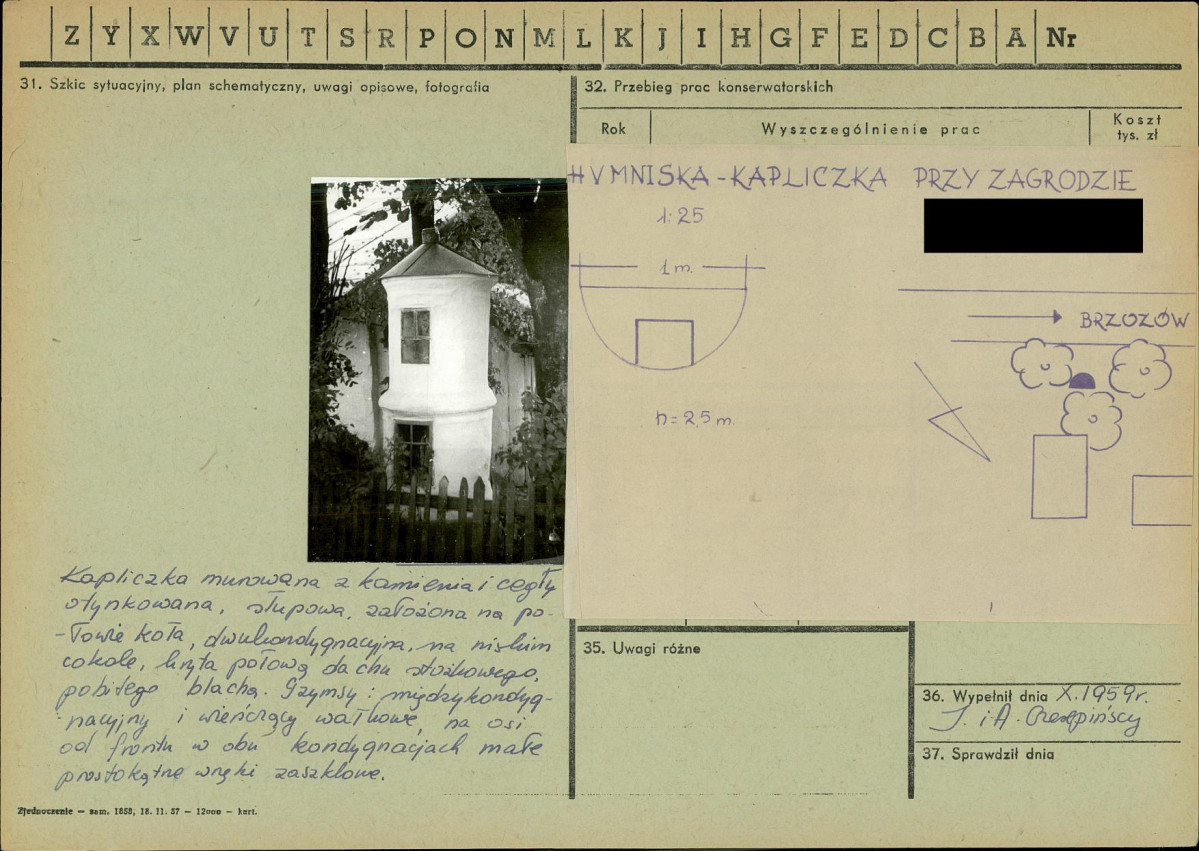 Z Y X W V U T S R P O N M L K J I H G F E D C B A Nr
31. Szkic sytuacyjny, plan schematyczny, uwagi opisowe, fotografia
32. Przebieg prac konserwatorskich
Rok
Wyszczególnienie prac
Koszt
tys. zł
HUMNISKA - KAPLICZKA PRZY ZAGRODZIE
1:25
1 m.
BRZOZÓW
h = 2,5 m.
Kapliczka murowana z kamienia i cegły
otynkowana, słupowa, założona na po-
-łowie koła, dwukondygnacyjna, na niskim
cokole, kryta połową dachu stożkowego,
pobitego blachą. Gzymsy: międzykondyg-
nacyjny i wieńczący wałkowe, na osi
od frontu w obu kondygnacjach małe
prostokątne wnęki zaszklone.
35. Uwagi różne
36. Wypełnił dnia X.1959r.
J. i A.
37. Sprawdził dnia
Zjednoczenie — zam. 1858, 18. 11. 57 — 12000 — kart.